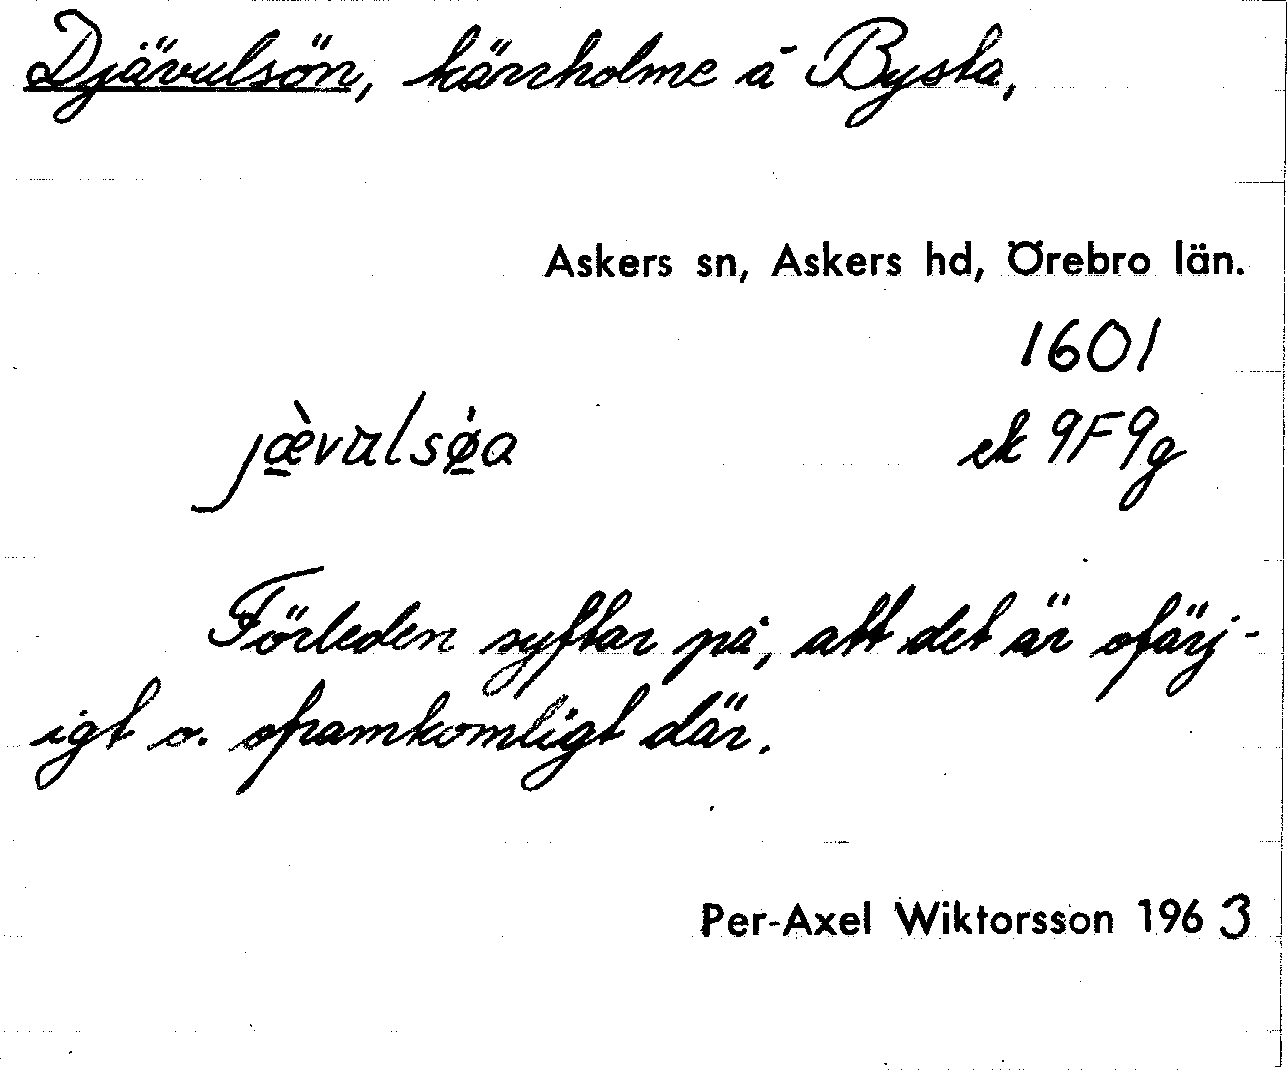 Djävulsön, kärrholme å Bysta,
Askers sn, Askers hd, Örebro län.
1601
jæ̠̀vulsø̠̍a ek 9F9g
Förleden syftar på, att det är ofärj-
igt o. oframkomligt där.
Per-Axel Wiktorsson 1963